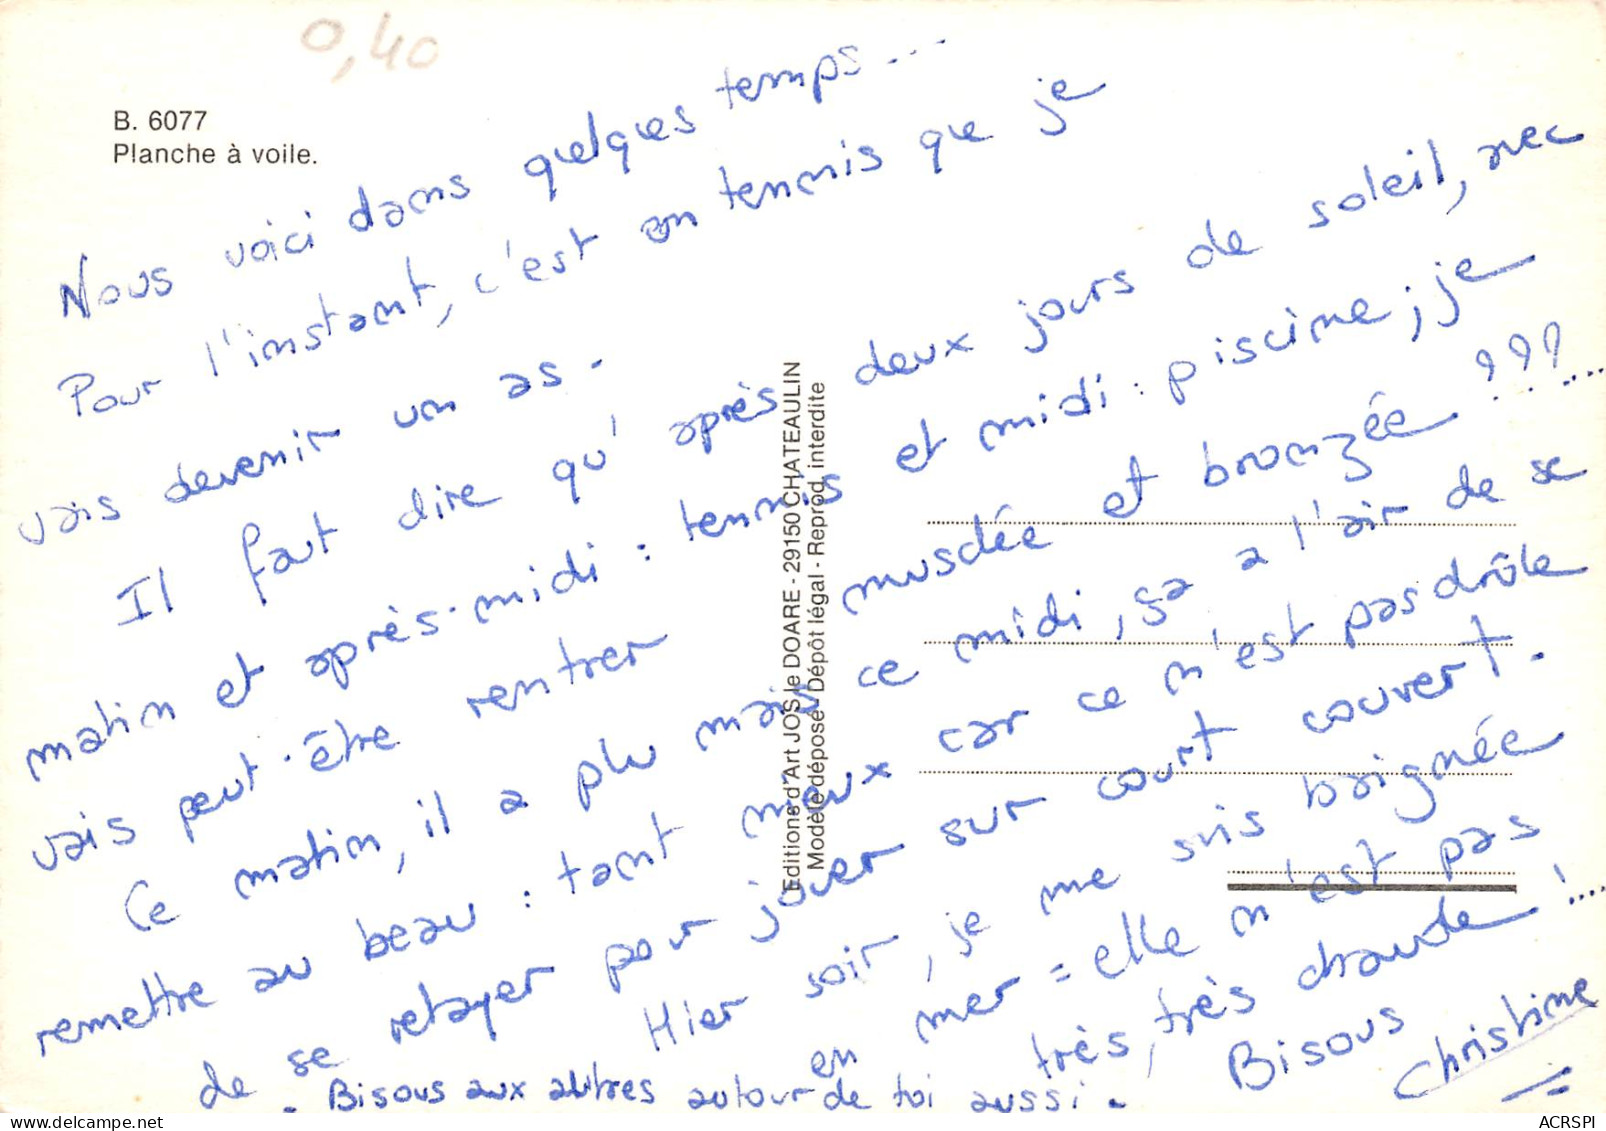 0,40
B. 6077
Planche à voile.
Nous voici dans quelques temps ...
Pour l'instant, c'est en tennis que je
vais devenir un as.
Il faut dire qu'après deux jours de soleil, avec
matin et après-midi : tennis et midi : piscine ; je
vais peut-être rentrer musclée et bronzée ???....
Ce matin, il a plu mais ce midi, ça a l'air de se
remettre au beau : tant mieux car ce n'est pas drôle
de se retaper pour jouer sur court couvert.
Hier soir, je me suis baignée
en mer = elle n'est pas
très, très chaude !....
Bisous
Christine
- Bisous aux autres autour de toi aussi -
Editions d'Art JOS le DOARE - 29150 CHATEAULIN
Modèle déposé - Dépôt légal - Reprod. interdite
ACRSPI